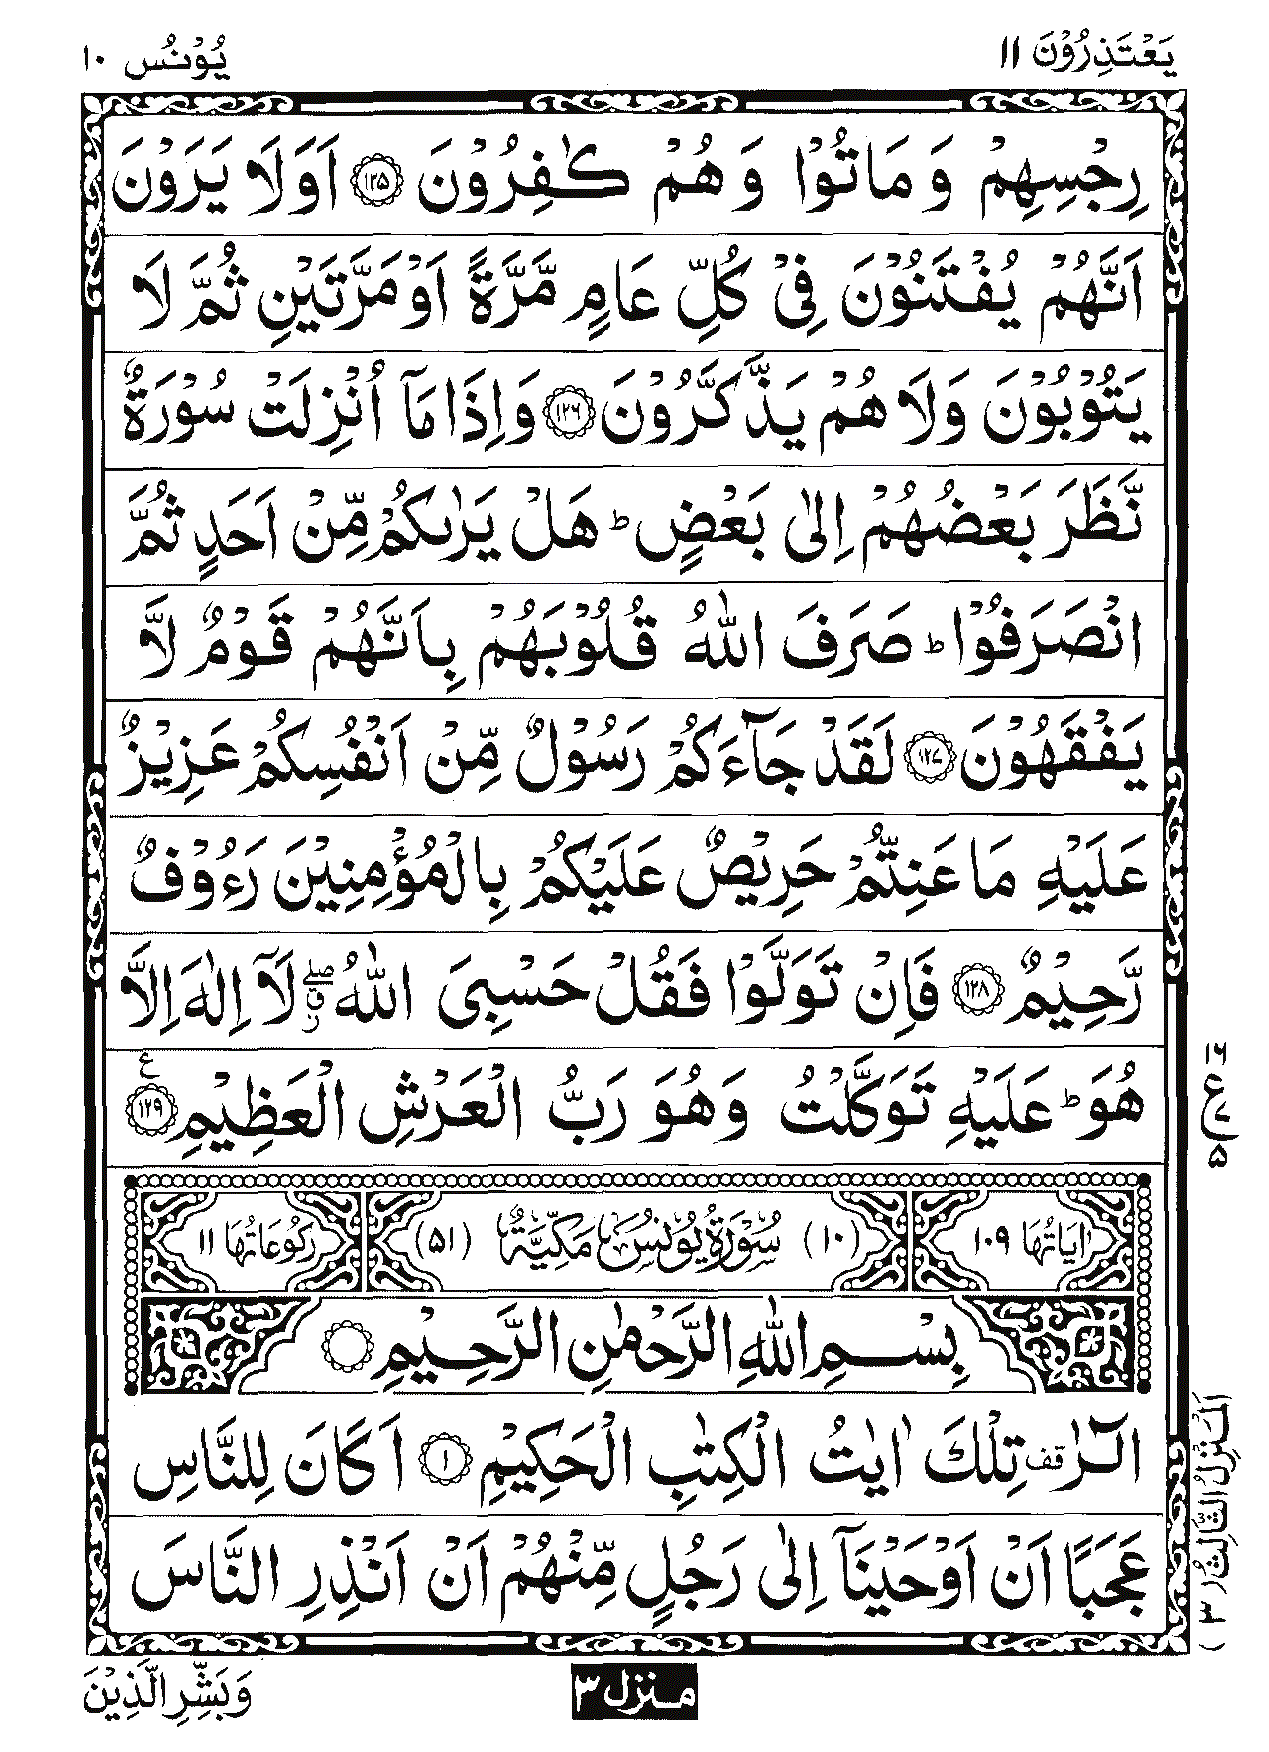 يَعْتَذِرُوْنَ ۱۱
يُوْنُس ۱۰
رِجْسِهِمْ وَ مَاتُوْا وَ هُمْ كٰفِرُوْنَ ۝۱۲۵ اَوَلَا يَرَوْنَ
اَنَّهُمْ يُفْتَنُوْنَ فِيْ كُلِّ عَامٍ مَّرَّةً اَوْ مَرَّتَيْنِ ثُمَّ لَا
يَتُوْبُوْنَ وَلَا هُمْ يَذَّكَّرُوْنَ ۝۱۲۶ وَاِذَا مَاۤ اُنْزِلَتْ سُوْرَةٌ
نَّظَرَ بَعْضُهُمْ اِلٰى بَعْضٍ ؕ هَلْ يَرٰىكُمْ مِّنْ اَحَدٍ ثُمَّ
انْصَرَفُوْا ؕ صَرَفَ اللّٰهُ قُلُوْبَهُمْ بِاَنَّهُمْ قَوْمٌ لَّا
يَفْقَهُوْنَ ۝۱۲۷ لَقَدْ جَآءَكُمْ رَسُوْلٌ مِّنْ اَنْفُسِكُمْ عَزِيْزٌ
عَلَيْهِ مَا عَنِتُّمْ حَرِيْصٌ عَلَيْكُمْ بِالْمُؤْمِنِيْنَ رَءُوْفٌ
رَّحِيْمٌ ۝۱۲۸ فَاِنْ تَوَلَّوْا فَقُلْ حَسْبِيَ اللّٰهُ ۖ لَاۤ اِلٰهَ اِلَّا
هُوَ ؕ عَلَيْهِ تَوَكَّلْتُ وَهُوَ رَبُّ الْعَرْشِ الْعَظِيْمِ ۝۱۲۹ ع
۱۶
ع
۵
اٰيَاتُهَا ۱۰۹ (۱۰) سُوْرَةُ يُوْنُسَ مَكِّيَّةٌ (۵۱) رُكُوْعَاتُهَا ۱۱
بِسْمِ اللّٰهِ الرَّحْمٰنِ الرَّحِيْمِ ۝
الٓرٰ قف تِلْكَ اٰيٰتُ الْكِتٰبِ الْحَكِيْمِ ۝۱ اَكَانَ لِلنَّاسِ
عَجَبًا اَنْ اَوْحَيْنَاۤ اِلٰى رَجُلٍ مِّنْهُمْ اَنْ اَنْذِرِ النَّاسَ
اَلْمَنْزِلُ الثَّالِثُ (۳)
منزل ۳
وَبَشِّرِ الَّذِيْنَ